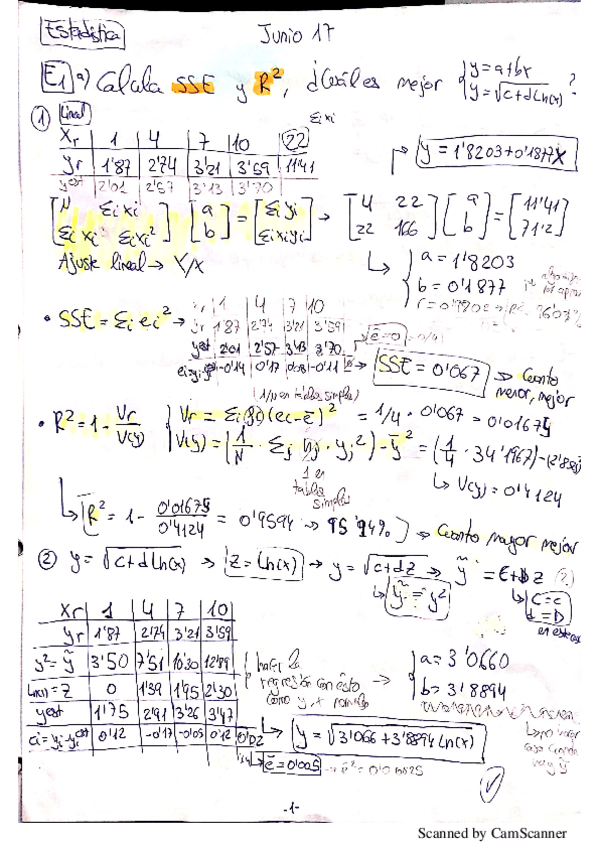 Estadística
Junio 17
E1 a) Calcula SSE y R², ¿Cuál es mejor { y=a+bx
y=√c+dLn(x) ?
① Lineal
Σixi
Xr | 1 | 4 | 7 | 10 | 22
yr | 1'87 | 2'74 | 3'21 | 3'59 | 11'41
yest | 2'01 | 2'57 | 3'13 | 3'70
→ y = 1'8203+0'1877X
[N Σixi
Σixi Σixi²] [a
b] = [Σiyi
Σixiyi] → [4 22
22 166] [a
b] = [11'41
71'2]
Ajuste lineal → Y/X
a = 1'8203
b = 0'1877
• SSE = Σi ei² →
1 | 4 | 7 | 10
yr | 1'87 | 2'74 | 3'21 | 3'59
yest | 2'01 | 2'57 | 3'13 | 3'70
-0'14 | 0'17 | 0'08 | -0'11
ē=0
→ SSE = 0'067 → Cuanto menor, mejor
(1/N en tablas simples)
• R² = 1 - Vr/V(y)
(ei-ē)² = 1/4 · 0'067 = 0'01675
= (1/4 · 34'1967)
1 en tablas simples
↳ V(y) = 0'4124
↳ R² = 1 - 0'01675/0'4124 = 0'9594 → 95'94% → Cuanto mayor mejor
② y = √c+dLn(x) → Z = Ln(x) → y = √c+dZ → ỹ = C+DZ
↳ ỹ = y²
C=c
d=D
Xr | 1 | 4 | 7 | 10
yr | 1'87 | 2'74 | 3'21 | 3'59
y²=ỹ | 3'50 | 7'51 | 10'30 | 12'89
Ln(x)=Z | 0 | 1'39 | 1'95 | 2'30
yest | 1'75 | 2'91 | 3'26 | 3'47
ei=yi-yiest | 0'12 | -0'17 | -0'05 | 0'12 | 0'02
regresión con esto
como y, x
→ a = 3'0660
b = 3'8894
↳ y = √3'066+3'8894Ln(x)
ē=0'005
-1-
Scanned by CamScanner